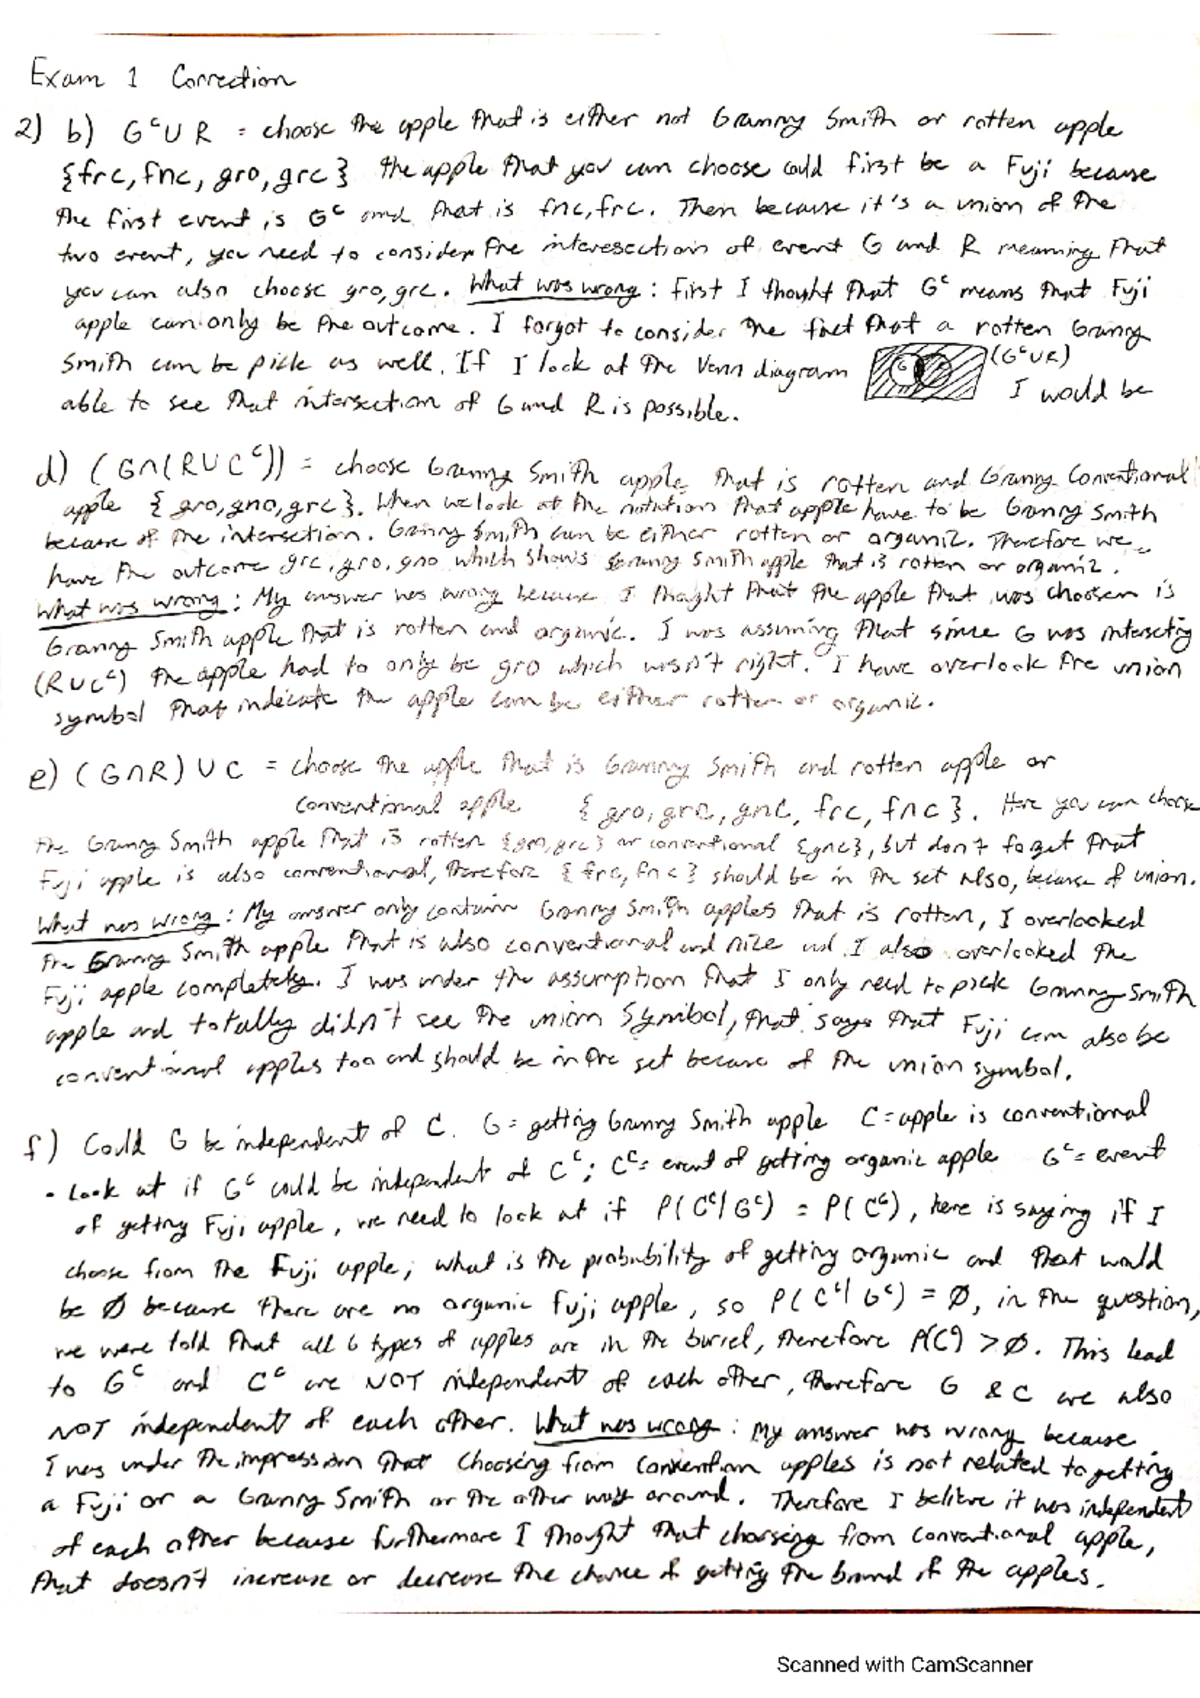 Exam 1 Correction
2) b) GᶜU R = choose the apple that is either not Granny Smith or rotten apple
{frc, fnc, gro, grc} the apple that you can choose could first be a Fuji because
the first event is Gᶜ and that is fnc, frc. Then because it's a union of the
two event, you need to consider the interesection of event G and R meaning that
you can also choose gro, grc. What was wrong : first I thought that Gᶜ means that Fuji
apple can only be the outcome. I forgot to consider the fact that a rotten Granny
Smith can be pick as well. If I look at the Venn diagram (GᶜUR) I would be
able to see that intersection of G and R is possible.
d) (G∩(RUCᶜ)) = choose Granny Smith apple that is rotten and Granny Conventional
apple {gro, gno, grc}. When we look at the notation that apple have to be Granny Smith
because of the intersection. Granny Smith can be either rotten or organic. Therefore we
have the outcome grc, gro, gno which shows Granny Smith apple that is rotten or organic.
What was wrong : My answer was wrong because I thought that the apple that was choosen is
Granny Smith apple that is rotten and organic. I was assuming that since G was intersecting
(RUCᶜ) the apple had to only be gro which wasn't right. I have overlook the union
symbol that indicate the apple can be either rotten or organic.
e) (G∩R) U C = choose the apple that is Granny Smith and rotten apple or
conventional apple {gro, grc, gnc, frc, fnc}. Here you can choose
the Granny Smith apple that is rotten {gro, grc} or conventional {gnc}, but don't forget that
Fuji apple is also conventional, therefore {frc, fnc} should be in the set also, because of union.
What was wrong : My answer only contain Granny Smith apples that is rotten, I overlooked
the Granny Smith apple that is also conventional and nize and I also overlooked the
Fuji apple completely. I was under the assumption that I only need to pick Granny Smith
apple and totally didn't see the union Symbol, that says that Fuji can also be
conventional apples too and should be in the set because of the union symbol.
f) Could G be independent of C. G = getting Granny Smith apple C = apple is conventional
• Look at if Gᶜ could be independent of Cᶜ; Cᶜ = event of getting organic apple Gᶜ = event
of getting Fuji apple, we need to look at if P(Cᶜ|Gᶜ) = P(Cᶜ), here is saying if I
choose from the Fuji apple; what is the probability of getting organic and that would
be Ø because there are no organic fuji apple, so P(Cᶜ|Gᶜ) = Ø, in the question,
we were told that all 6 types of apples are in the barrel, therefore P(Cᶜ) > Ø. This lead
to Gᶜ and Cᶜ are NOT independent of each other, therefore G & C are also
NOT independent of each other. What was wrong : My answer was wrong because
I was under the impression that choosing from convention apples is not related to getting
a Fuji or a Granny Smith or the other way around. Therefore I believe it was independent
of each other because furthermore I thought that choosing from conventional apple,
that doesn't increase or decrease the chance of getting the brand of the apples.
Scanned with CamScanner